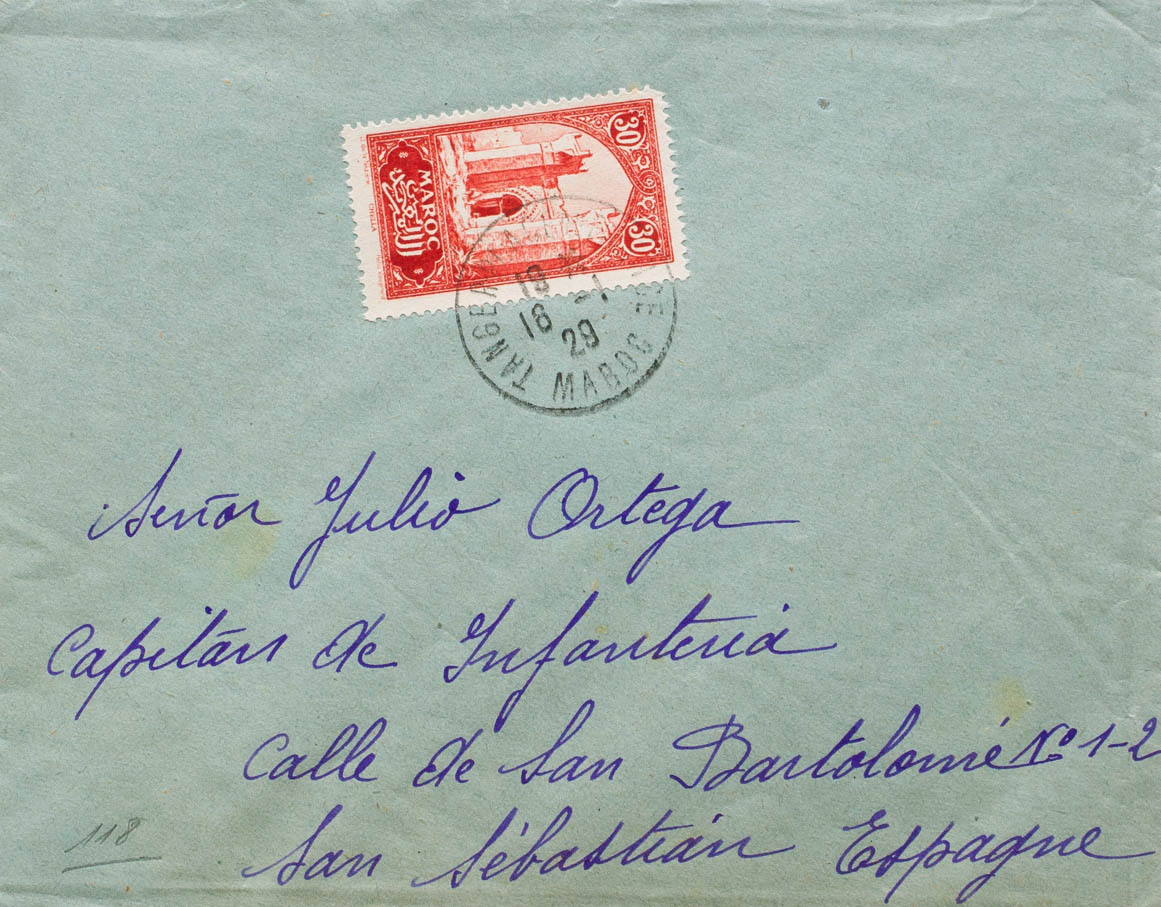 30
30
MAROC
CHELLA
TANGER
18
16 -1
29
MAROC
Señor Julio Ortega
Capitán de Infanteria
Calle de San Bartolomé Nº 1-2
San Sébastián Espagne
118